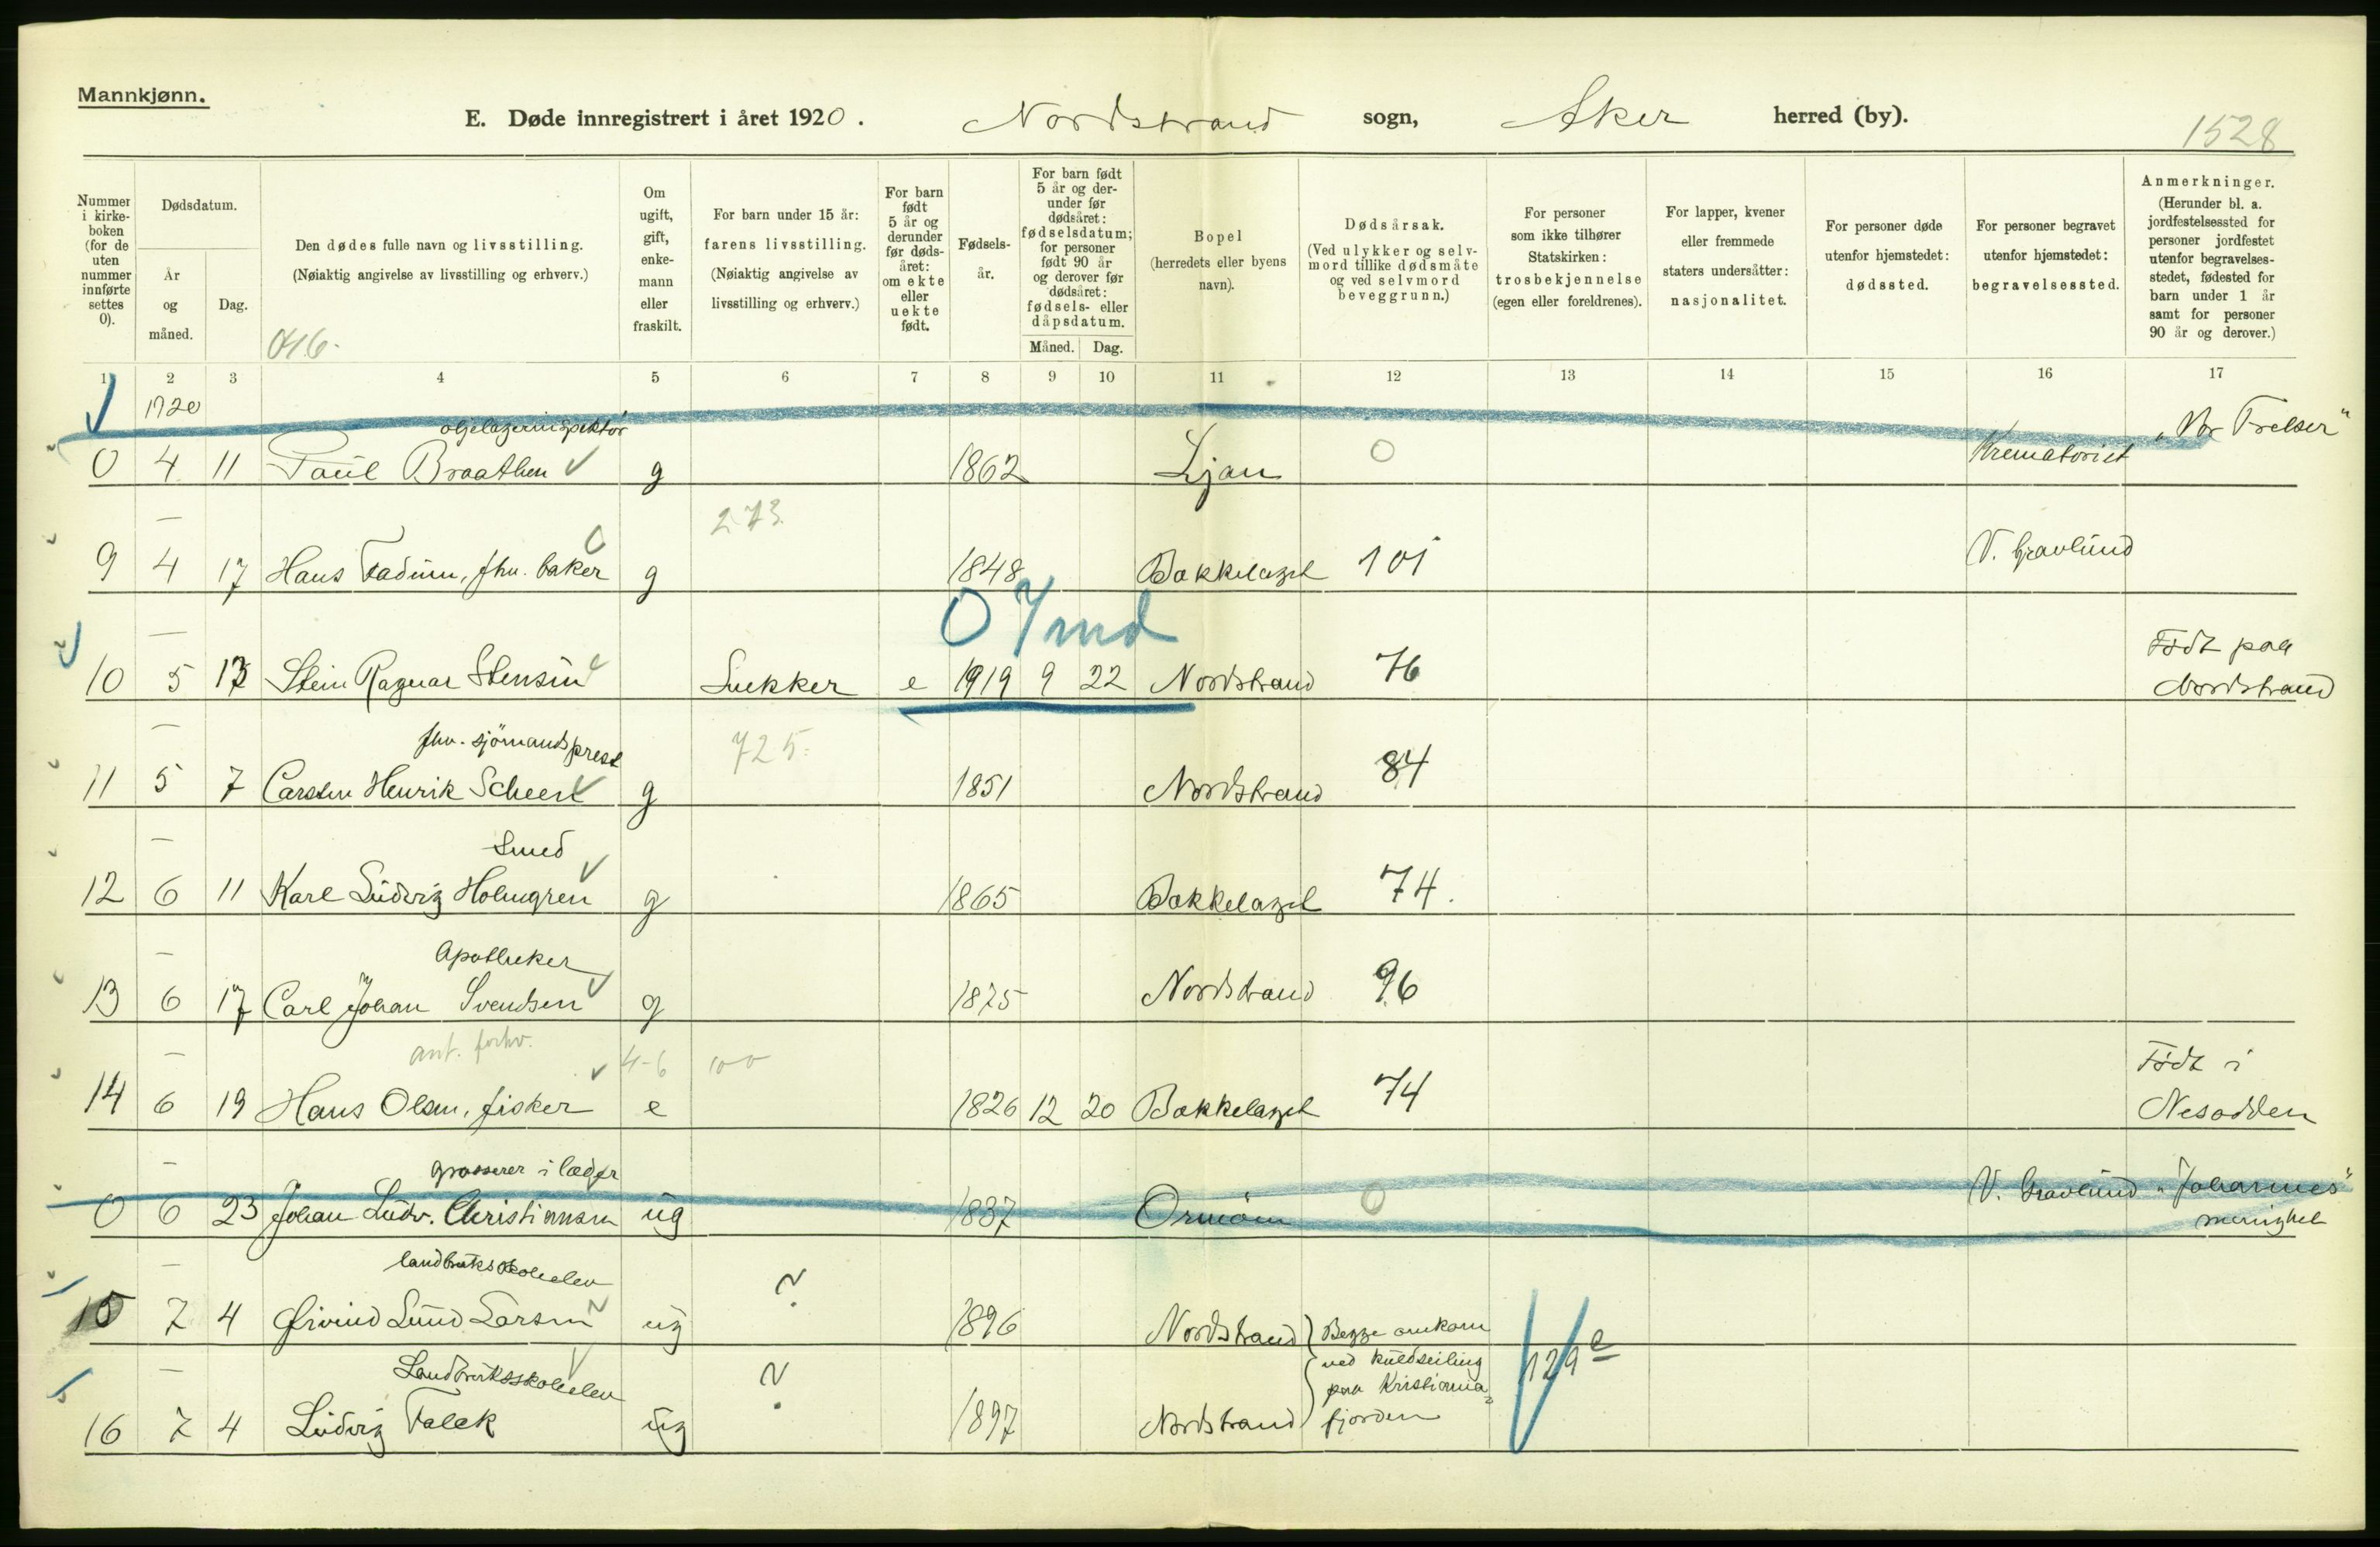 Mannkjønn.
E. Døde innregistrert i året 1920. Nordstrand sogn, Aker herred (by).
1528
Nummer i kirke-boken (for de uten nummer innførte settes 0).
Dødsdatum.
År og måned.
Dag.
Den dødes fulle navn og livsstilling.
(Nøiaktig angivelse av livsstilling og erhverv.)
Om ugift, gift, enke-mann eller fraskilt.
For barn under 15 år:
farens livsstilling.
(Nøiaktig angivelse av livsstilling og erhverv.)
For barn født 5 år og derunder før døds-året: om ekte eller uekte født.
Fødsels-år.
For barn født 5 år og der-under før dødsåret: fødselsdatum; for personer født 90 år og derover før dødsåret: fødsels- eller dåpsdatum.
Måned. Dag.
Bopel
(herredets eller byens navn).
Dødsårsak.
(Ved ulykker og selv-mord tillike dødsmåte og ved selvmord beveggrunn.)
For personer som ikke tilhører Statskirken: trosbekjennelse (egen eller foreldrenes).
For lapper, kvener eller fremmede staters undersåtter: nasjonalitet.
For personer døde utenfor hjemstedet: dødssted.
For personer begravet utenfor hjemstedet: begravelsessted.
Anmerkninger.
(Herunder bl. a. jordfestelsessted for personer jordfestet utenfor begravelses-stedet, fødested for barn under 1 år samt for personer 90 år og derover.)
1 2 3 4 5 6 7 8 9 10 11 12 13 14 15 16 17
1920
oljelagerinspektør
0 4 11 Paul Braathen g 1862 Ljan 0 Krematoriet "Vor Frelser"
273.
9 4 17 Hans Fadum, fhv. baker g 1848 Bækkelaget 101 V. Gravlund
0 7 md
10 5 13 Stein Ragnar Stensrud Snekker e 1919 9 22 Nordstrand 76 Født paa Nordstrand
fhv. sjömandsprest
725.
11 5 7 Carsten Henrik Scheel g 1851 Nordstrand 84
Smed
12 6 11 Karl Ludvig Holmgren g 1865 Bækkelaget 74.
Apotheker
13 6 17 Carl Johan Svendsen g 1875 Nordstrand 96
ant. forhv. 4-6 100
14 6 19 Hans Olsen, fisker e 1826 12 20 Bækkelaget 74 Født i Nesodden
grosserer i læder
0 6 23 Johan Ludv. Christiansen ug 1837 Ormöen 0 V. Gravlund "Johannes" menighet
landbruksskoleelev
15 7 4 Øivind Lund Larsen ug ? 1896 Nordstrand Begge omkom
Landbruksskoleelev ved kuldseiling 129 e
paa Kristiania-
16 7 4 Ludvig Falck ug ? 1897 Nordstrand fjorden